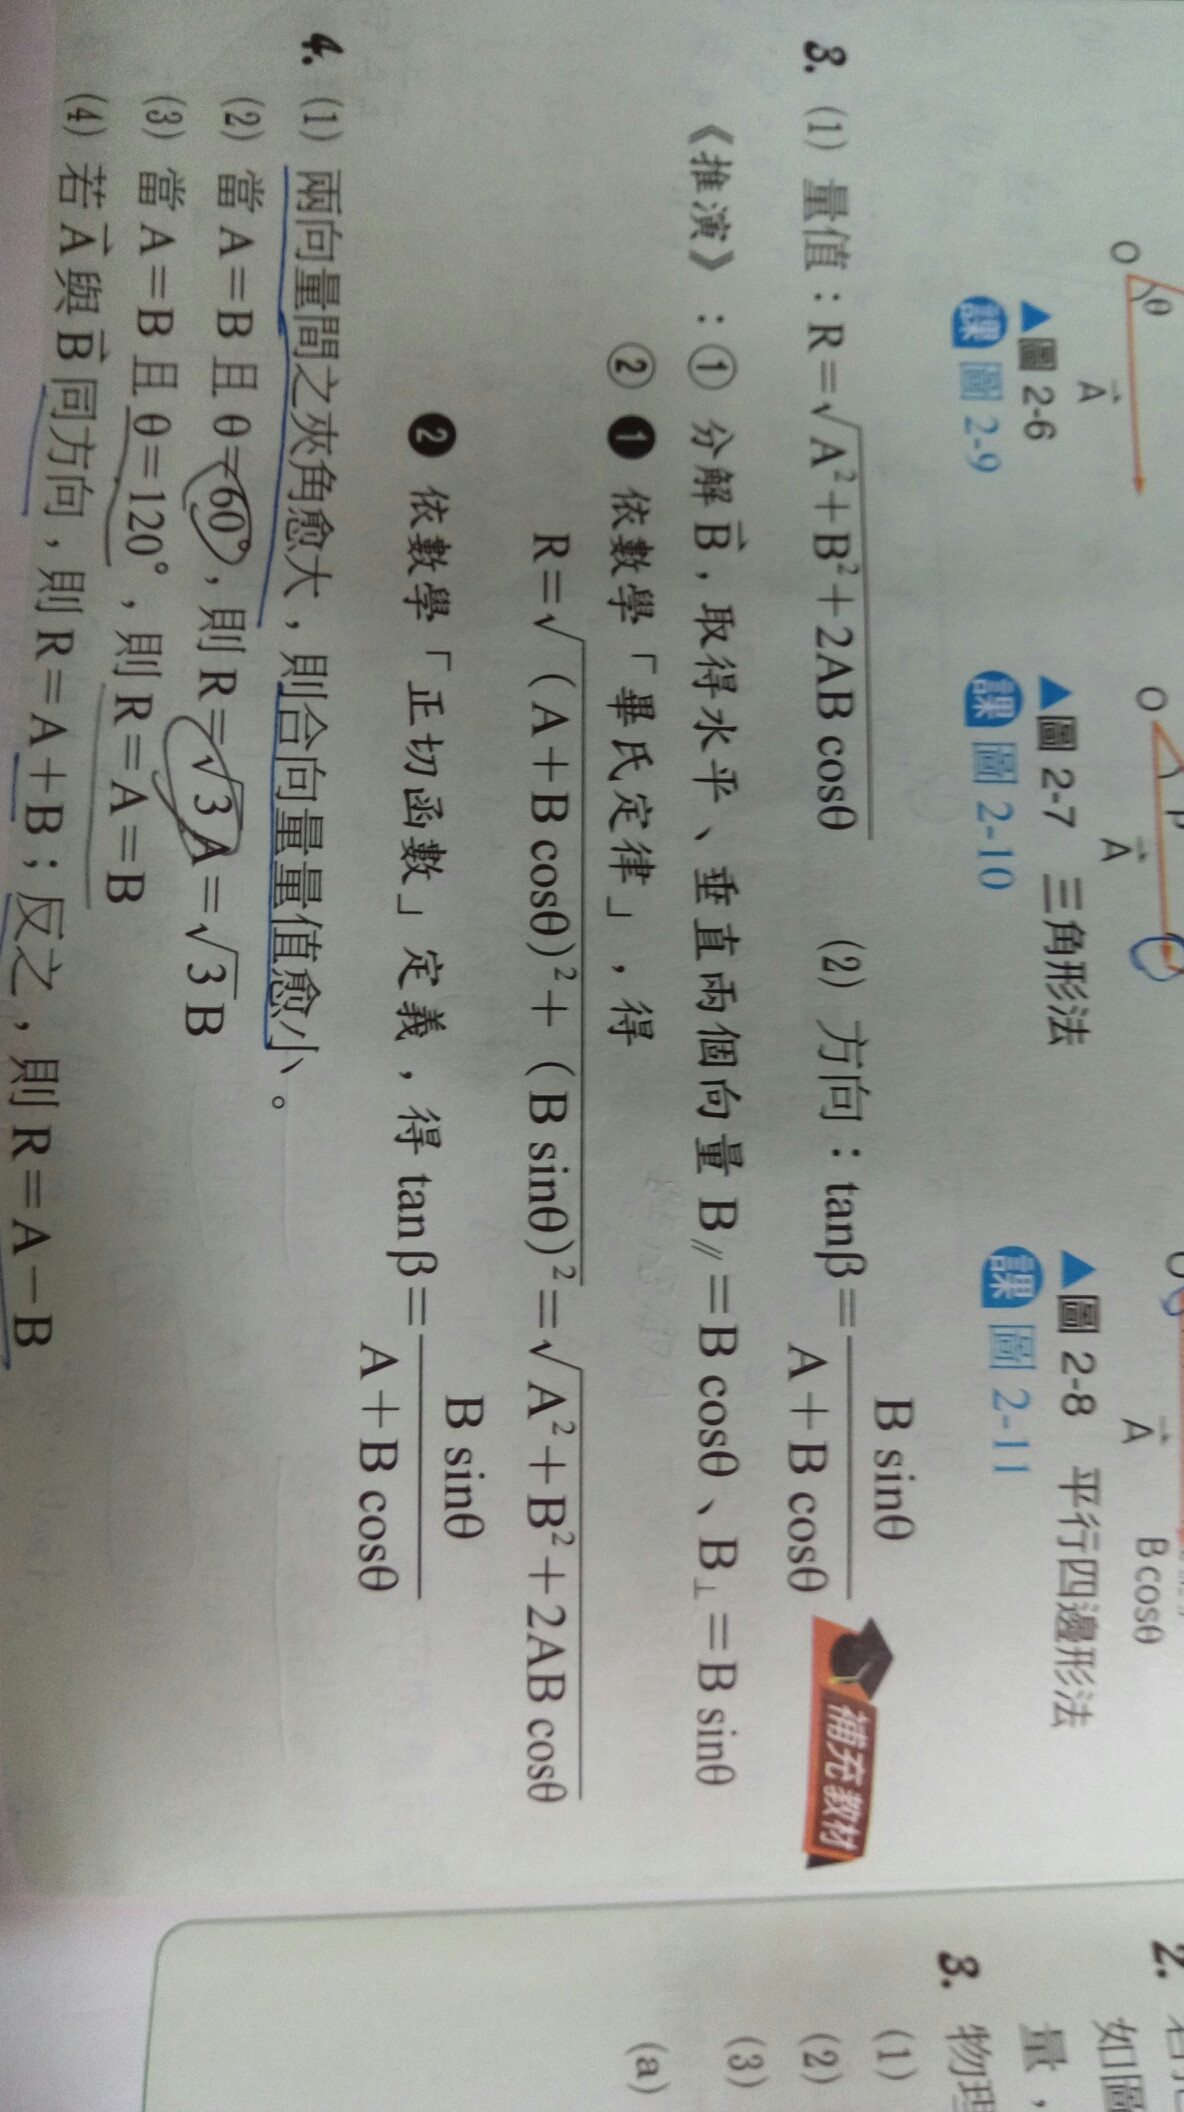 O θ A
O β A
A B cosθ
▲圖 2-6
▲圖 2-7 三角形法
▲圖 2-8 平行四邊形法
課 圖 2-9
課 圖 2-10
課 圖 2-11
3. (1) 量值：R＝√(A²＋B²＋2AB cosθ) (2) 方向：tanβ＝B sinθ / (A＋B cosθ) 補充教材
《推演》：① 分解 B⃗，取得水平、垂直兩個向量 B∥＝B cosθ、B⊥＝B sinθ
② ❶ 依數學「畢氏定律」，得
R＝√((A＋B cosθ)²＋(B sinθ)²)＝√(A²＋B²＋2AB cosθ)
❷ 依數學「正切函數」定義，得 tanβ＝B sinθ / (A＋B cosθ)
4. (1) 兩向量間之夾角愈大，則合向量量值愈小。
(2) 當 A＝B 且 θ＝60°，則 R＝√3 A＝√3 B
(3) 當 A＝B 且 θ＝120°，則 R＝A＝B
(4) 若 A⃗ 與 B⃗ 同方向，則 R＝A＋B；反之，則 R＝A－B
2.
如圖
量，
3. 物理
(1)
(2)
(3)
(a)